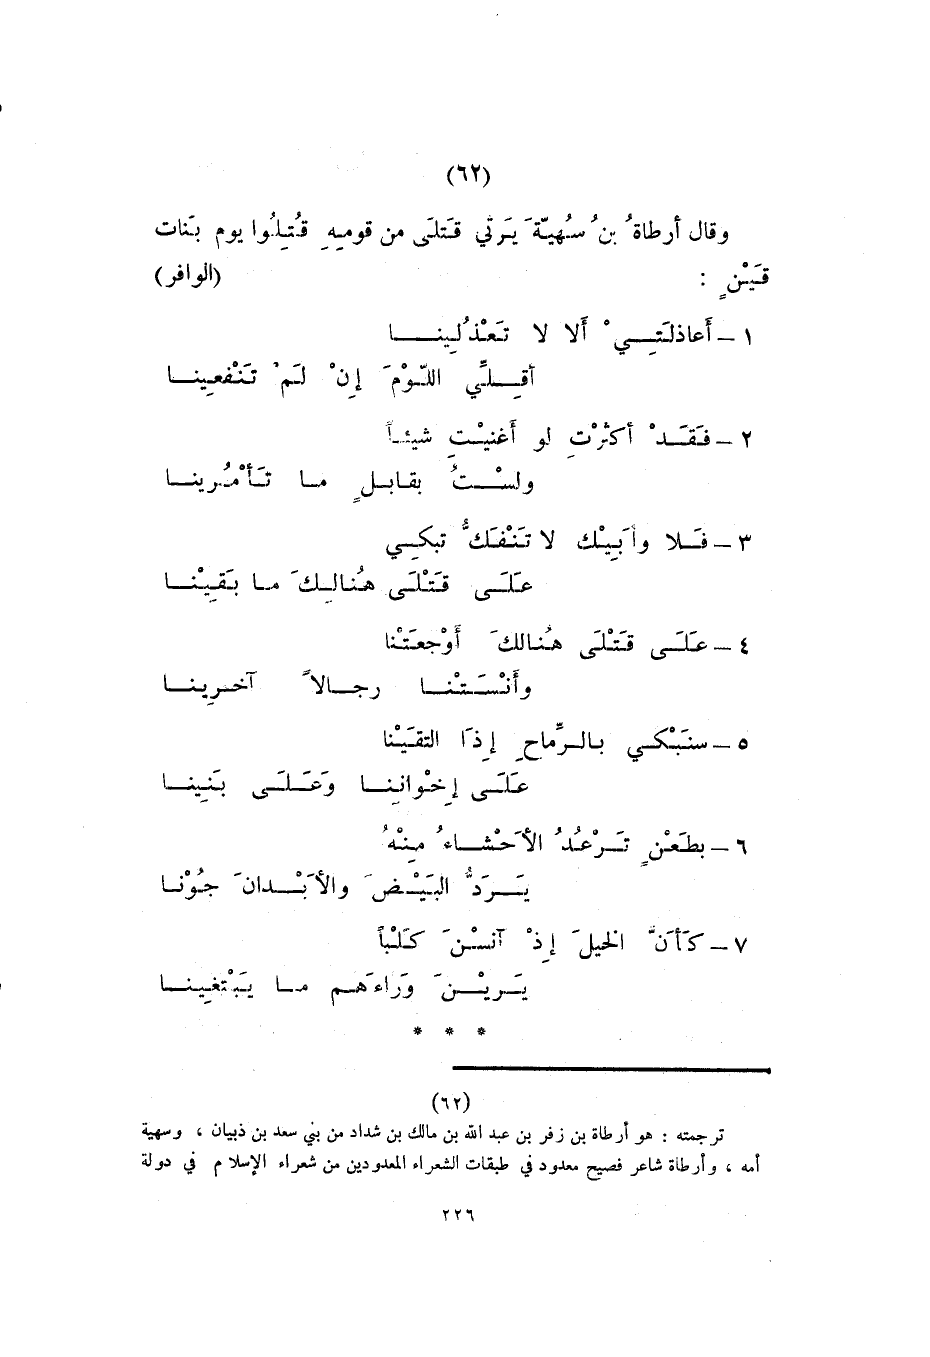 (٦٢)
وقال أرطاةُ بنُ سُهيّةَ يَرثي قَتلَى من قومِهِ قُتِلُوا يوم بَنات
قَيْنٍ : (الوافر)
١ – أَعاذلَتِيْ أَلا لا تَعْذُلِينا
أقِلِّي اللّوْمَ إنْ لَمْ تَنْفعِينا
٢ – فَقَدْ أكثرْتِ لو أَغنيْتِ شيئاً
ولسْتُ بقابلٍ ما تَأْمُرِينا
٣ – فَلا وأَبِيْك لا تَنْفَكُّ تبكِي
عَلَى قَتْلَى هُنالِكَ ما بَقِيْنا
٤ – عَلَى قَتْلَى هُنالكَ أَوْجعَتْنا
وأَنْسَتْنا رجالاً آخرِينا
٥ – سنَبْكي بالرِّماحِ إذَا التقَيْنا
عَلَى إخْوانِنا وَعَلَى بَنِينا
٦ – بطَعْنٍ تَرْعُدُ الأَحْشاءُ مِنْهُ
يَرَدُّ البَيْضَ والأَبْدانَ جُوْنا
٧ – كَأَنَّ الخيلَ إذْ آنسْنَ كَلْباً
يَرِيْنَ وَراءَهم ما يَبْتغِينا
* * *
(٦٢)
ترجمته : هو أرطاة بن زفر بن عبد الله بن مالك بن شداد من بني سعد بن ذبيان ، وسهية
أمه ، وأرطاة شاعر فصيح معدود في طبقات الشعراء المعدودين من شعراء الإسلام في دولة
٢٢٦